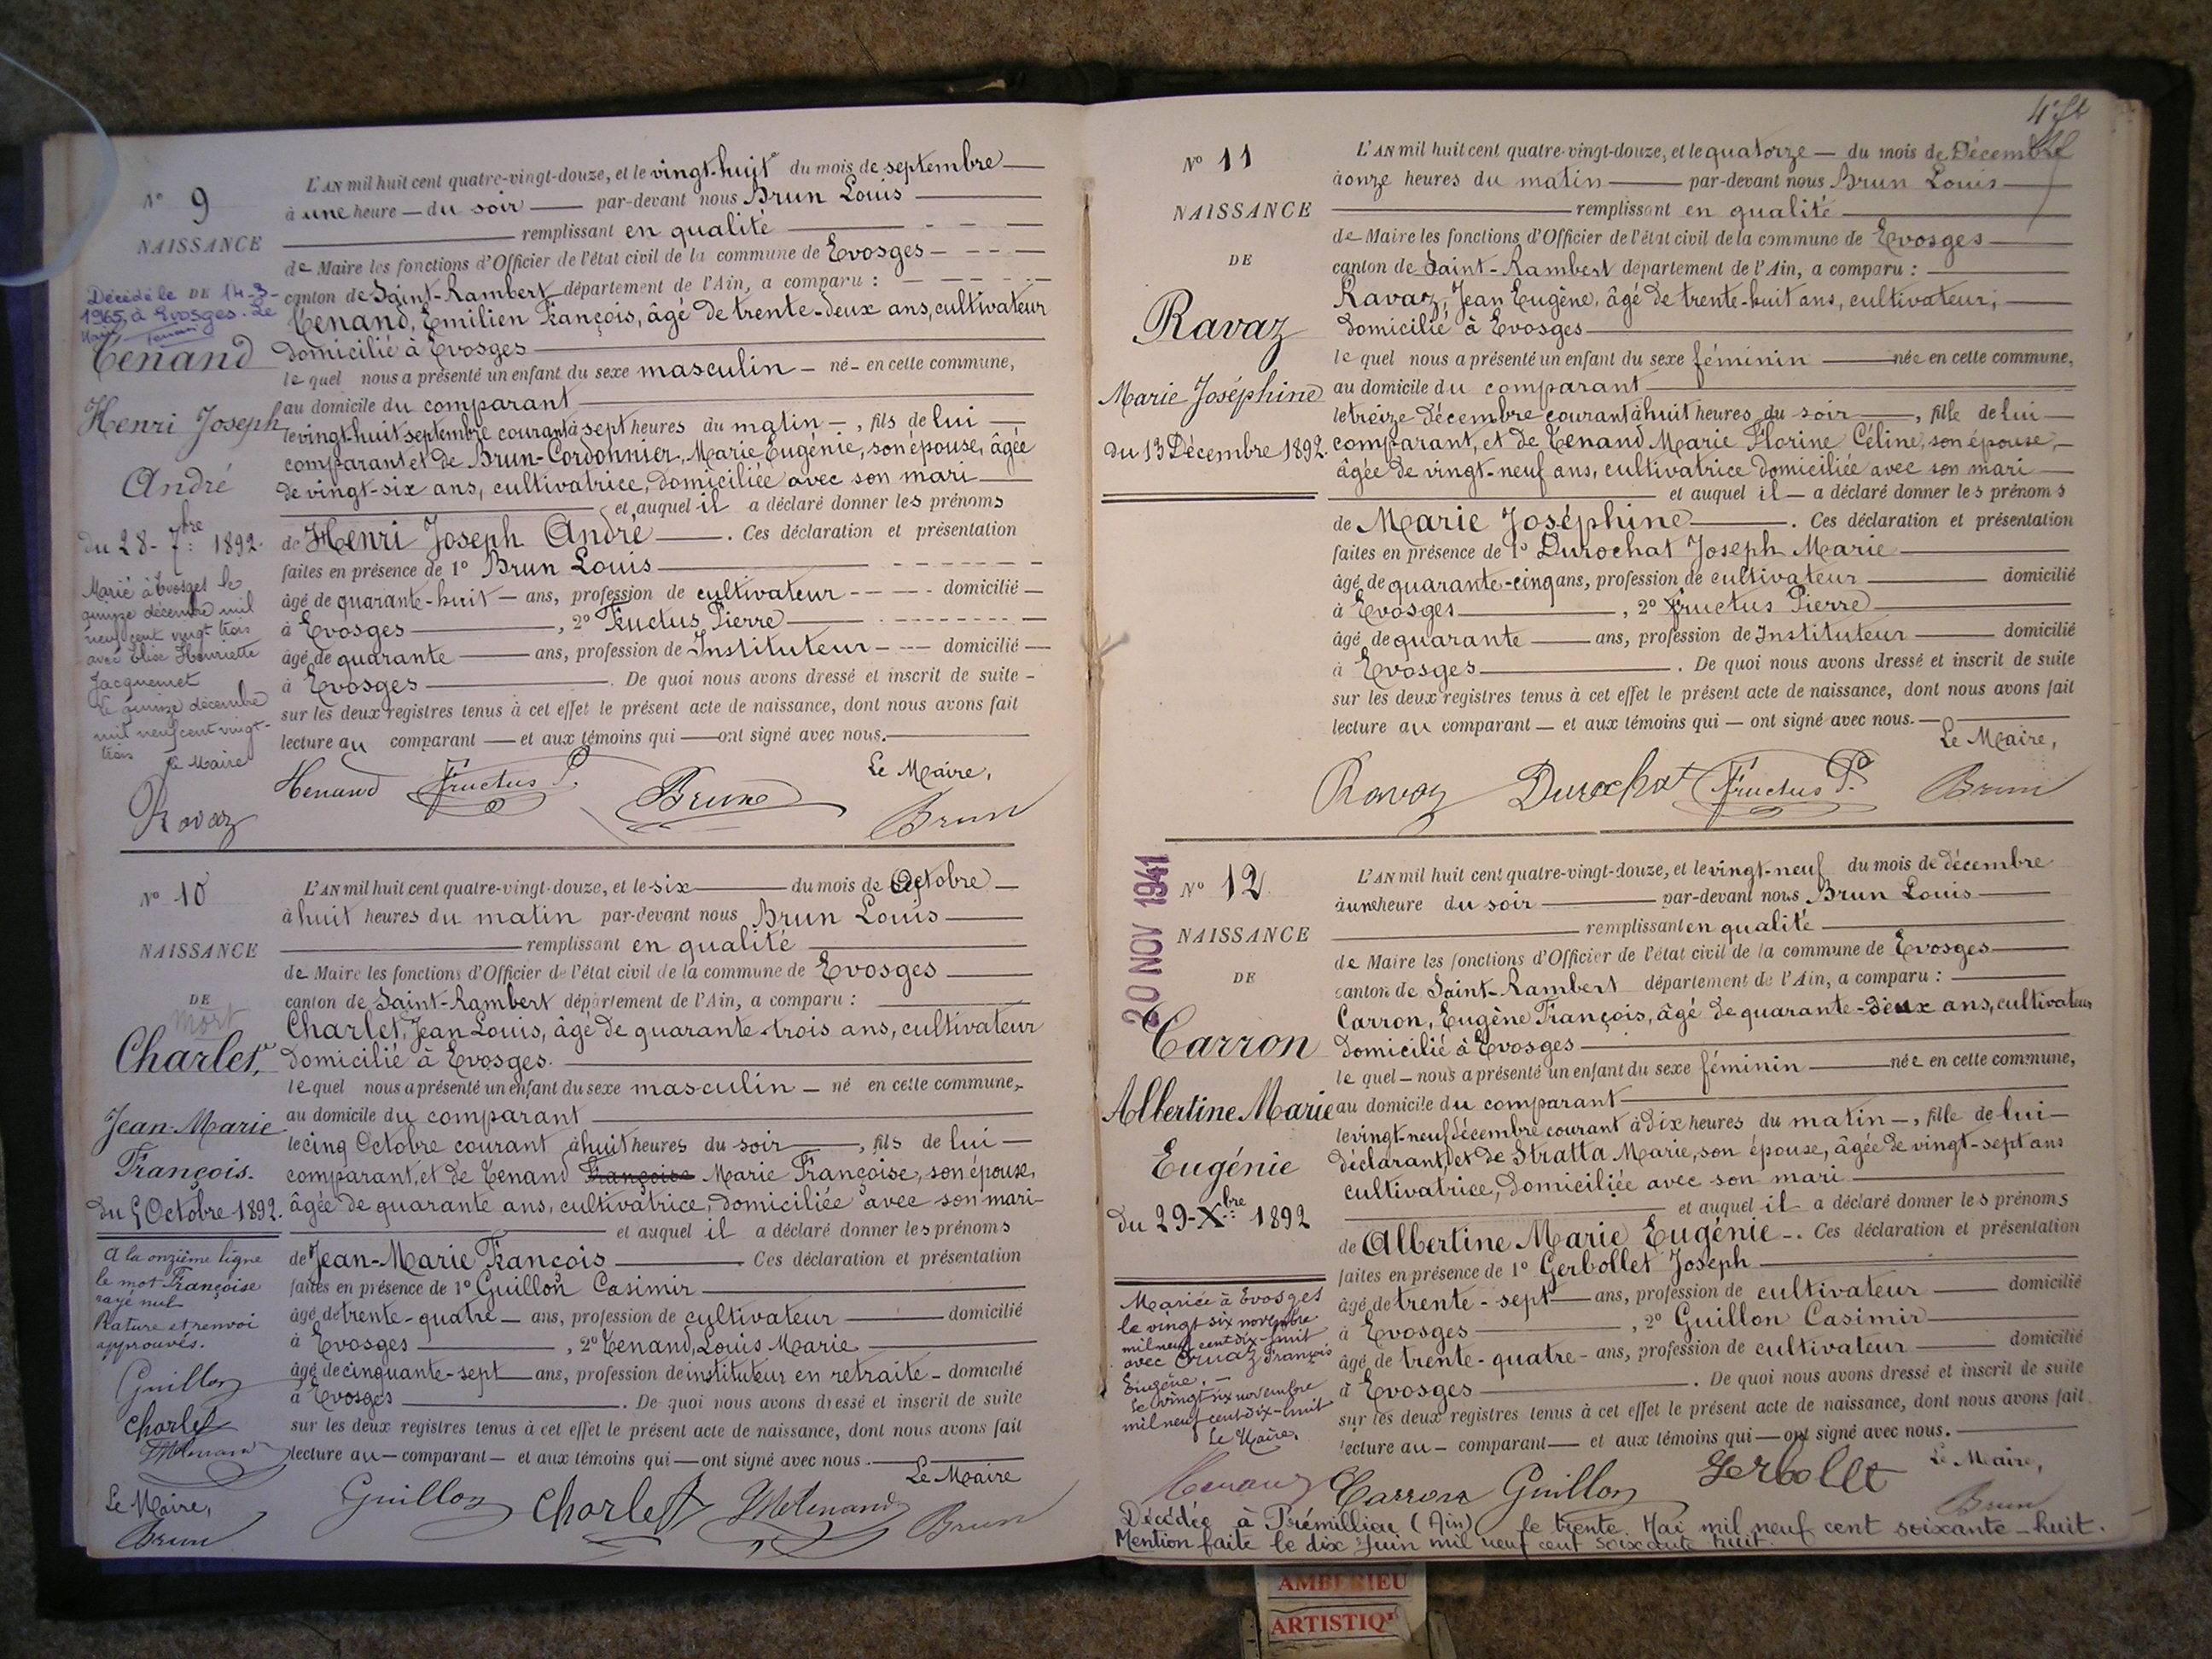 N° 9
NAISSANCE
DE
Décédé le 14-3-
1965, à Evosges. Le
Maire
Tenand
Henri Joseph
André
du 28-7bre 1892.
Marié à Evosges le
quinze décembre mil
neuf cent vingt trois
avec Elise Henriette
Jacquemet
Le quinze décembre
mil neuf cent vingt-
trois
Le Maire
Ravaz
L'AN mil huit cent quatre-vingt-douze, et le vingt-huit du mois de septembre
à une heure du soir par-devant nous Brun Louis
remplissant en qualité
de Maire les fonctions d'Officier de l'état civil de la commune de Evosges
canton de Saint-Rambert département de l'Ain, a comparu :
Tenand, Emilien François, âgé de trente-deux ans, cultivateur
domicilié à Evosges
lequel nous a présenté un enfant du sexe masculin né en cette commune,
au domicile du comparant
le vingt-huit septembre courant à sept heures du matin, fils de lui
comparant et de Brun-Cordonnier, Marie Eugénie, son épouse, âgée
de vingt-six ans, cultivatrice, domiciliée avec son mari
et auquel il a déclaré donner les prénoms
de Henri Joseph André. Ces déclaration et présentation
faites en présence de 1° Brun Louis
âgé de quarante-huit ans, profession de cultivateur domicilié
à Evosges, 2° Fructus Pierre
âgé de quarante ans, profession de Instituteur domicilié
à Evosges. De quoi nous avons dressé et inscrit de suite
sur les deux registres tenus à cet effet le présent acte de naissance, dont nous avons fait
lecture au comparant et aux témoins qui ont signé avec nous.
Le Maire,
Tenand Fructus P. Brun Brun
N° 10
NAISSANCE
DE
Mort
Charlet,
Jean-Marie
François.
du 5 Octobre 1892.
A la onzième ligne
le mot Françoise
rayé nul
Rature et renvoi
approuvés.
Guillon
Charlet
Le Maire,
Brun
L'AN mil huit cent quatre-vingt-douze, et le six du mois de Octobre
à huit heures du matin par-devant nous Brun Louis
remplissant en qualité
de Maire les fonctions d'Officier de l'état civil de la commune de Evosges
canton de Saint-Rambert département de l'Ain, a comparu :
Charlet, Jean Louis, âgé de quarante-trois ans, cultivateur
domicilié à Evosges.
lequel nous a présenté un enfant du sexe masculin né en cette commune,
au domicile du comparant
le cinq Octobre courant à huit heures du soir, fils de lui
comparant, et de Tenand Françoise Marie Françoise, son épouse,
âgée de quarante ans, cultivatrice, domiciliée avec son mari
et auquel il a déclaré donner les prénoms
de Jean-Marie François Ces déclaration et présentation
faites en présence de 1° Guillon Casimir
âgé de trente-quatre ans, profession de cultivateur domicilié
à Evosges, 2° Tenand, Louis Marie
âgé de cinquante-sept ans, profession de instituteur en retraite domicilié
à Evosges. De quoi nous avons dressé et inscrit de suite
sur les deux registres tenus à cet effet le présent acte de naissance, dont nous avons fait
lecture au comparant et aux témoins qui ont signé avec nous.
Le Maire
Guillon Charlet Brun
N° 11
NAISSANCE
DE
Ravaz
Marie Joséphine
du 13 Décembre 1892.
L'AN mil huit cent quatre-vingt-douze, et le quatorze du mois de Décembre
à onze heures du matin par-devant nous Brun Louis
remplissant en qualité
de Maire les fonctions d'Officier de l'état civil de la commune de Evosges
canton de Saint-Rambert département de l'Ain, a comparu :
Ravaz, Jean Eugène, âgé de trente-huit ans, cultivateur,
domicilié à Evosges
lequel nous a présenté un enfant du sexe féminin née en cette commune,
au domicile du comparant
le treize Décembre courant à huit heures du soir, fille de lui
comparant, et de Tenand Marie Florine Céline, son épouse,
âgée de vingt-neuf ans, cultivatrice domiciliée avec son mari
et auquel il a déclaré donner les prénoms
de Marie Joséphine. Ces déclaration et présentation
faites en présence de 1° Durochat Joseph Marie
âgé de quarante-cinq ans, profession de cultivateur domicilié
à Evosges, 2° Fructus Pierre
âgé de quarante ans, profession de Instituteur domicilié
à Evosges. De quoi nous avons dressé et inscrit de suite
sur les deux registres tenus à cet effet le présent acte de naissance, dont nous avons fait
lecture au comparant et aux témoins qui ont signé avec nous.
Le Maire,
Ravaz Durochat Fructus P. Brun
20 NOV 1941
N° 12
NAISSANCE
DE
Carron
Albertine Marie
Eugénie
du 29-Xbre 1892
Mariée à Evosges
le vingt six novembre
mil neuf cent dix-huit
avec Cruaz François
Eugène.
Le vingt six novembre
mil neuf cent dix-huit
Le Maire,
L'AN mil huit cent quatre-vingt-douze, et le vingt-neuf du mois de décembre
à une heure du soir par-devant nous Brun Louis
remplissant en qualité
de Maire les fonctions d'Officier de l'état civil de la commune de Evosges
canton de Saint-Rambert département de l'Ain, a comparu :
Carron, Eugène François, âgé de quarante-deux ans, cultivateur
domicilié à Evosges
lequel nous a présenté un enfant du sexe féminin née en cette commune,
au domicile du comparant
le vingt-neuf décembre courant à dix heures du matin, fille de lui
déclarant, et de Stratta Marie, son épouse, âgée de vingt-sept ans
cultivatrice, domiciliée avec son mari
et auquel il a déclaré donner les prénoms
de Albertine Marie Eugénie. Ces déclaration et présentation
faites en présence de 1° Gerbollet Joseph
âgé de trente-sept ans, profession de cultivateur domicilié
à Evosges, 2° Guillon Casimir
âgé de trente-quatre ans, profession de cultivateur domicilié
à Evosges. De quoi nous avons dressé et inscrit de suite
sur les deux registres tenus à cet effet le présent acte de naissance, dont nous avons fait
lecture au comparant et aux témoins qui ont signé avec nous.
Le Maire,
Carron Guillon Gerbollet Brun
Décédée à Prémillieu (Ain) le trente Mai mil neuf cent soixante-huit.
Mention faite le dix Juin mil neuf cent soixante huit.
AMBERIEU
ARTISTIQ